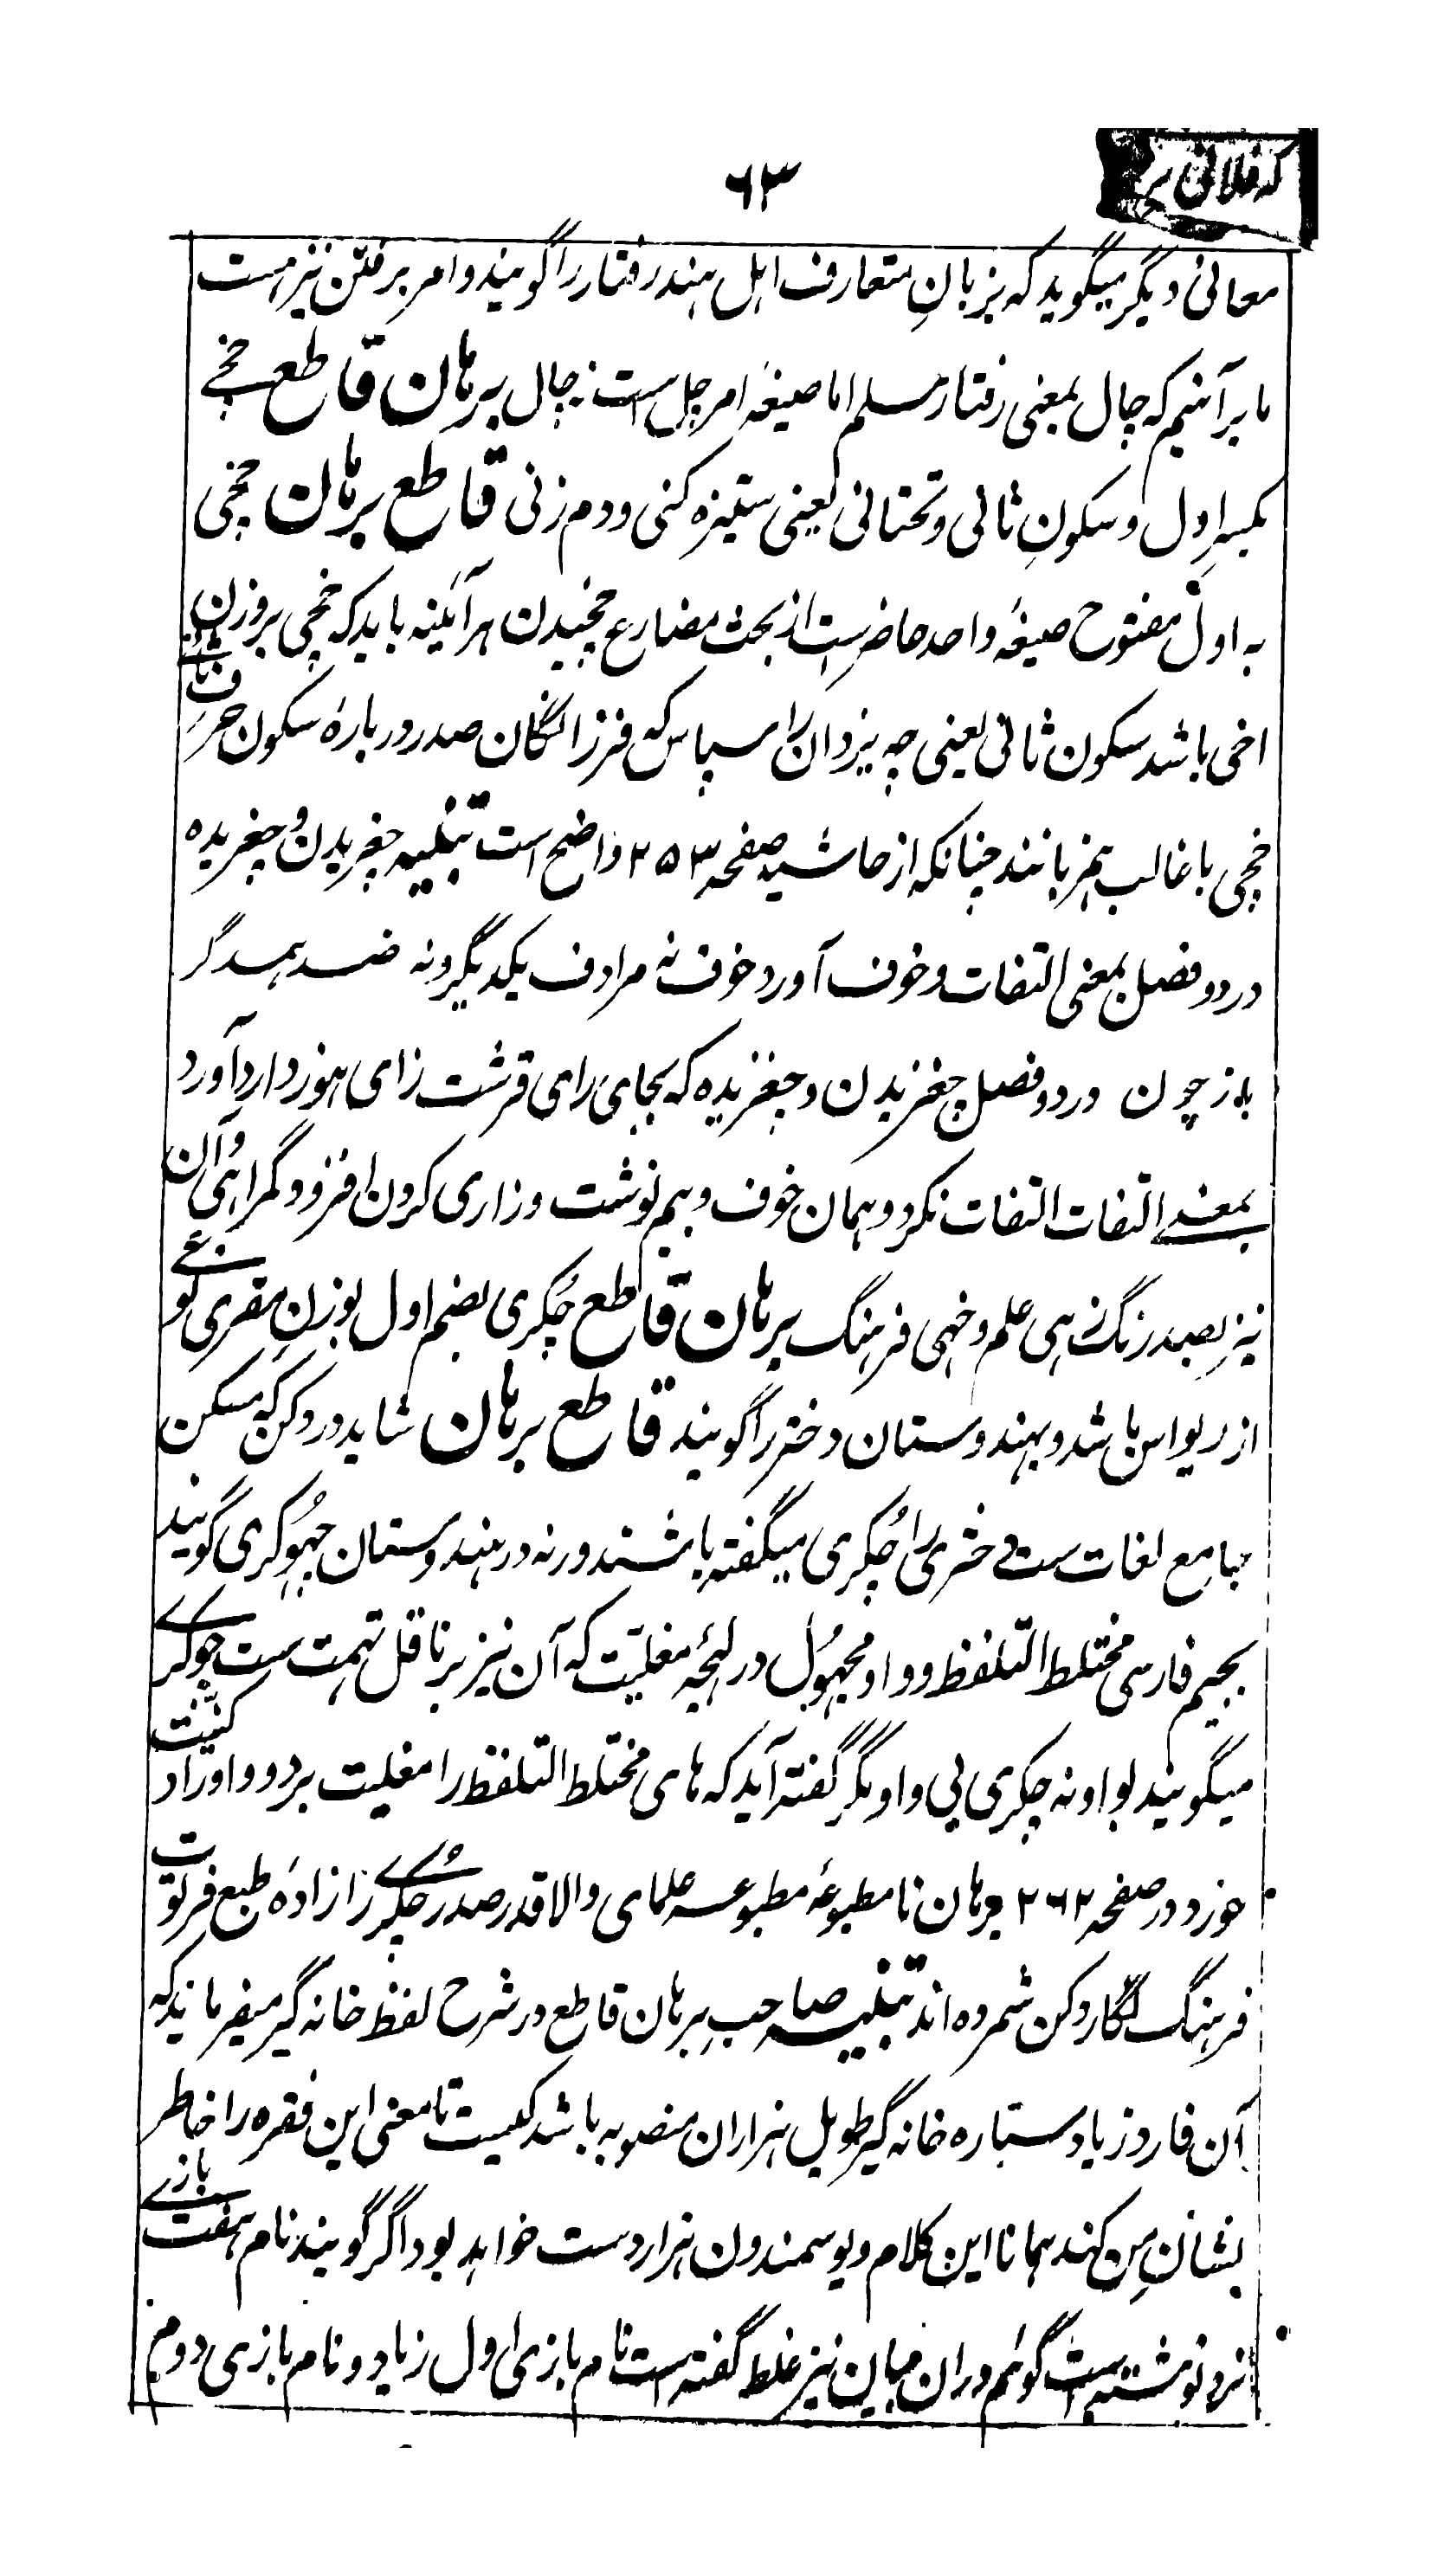 که فلانی
۶۳
معانی دیگر میگوید که بزبانِ متعارف اہل ہند رفتار را گویند و امر برفتن نیز ہست
ما برآنیم که چال بمعنی رفتار مسلم اما صیغهٔ امر چل است نہ چال برہان قاطع چخی
بکسرِ اول و سکونِ ثانی و تحتانی یعنی ستیزه کنی و دم زنی قاطع برہان چخی
بہ اول مفتوح صیغهٔ واحد حاضرست از بحث مضارع چخیدن ہر آئینه باید که چخی بروزن
اخی باشد سکون ثانی یعنی چه یزدان را سپاس که فرزانگان صدر دربارهٔ سکون حرف ثانی
چخی با غالب ہمزبانند چنانکه از حاشیهٔ صفحه ۲۵۳ واضح است تنبیه چغریدن و چغریده
در دو فصل بمعنی التفات و خوف آورد خوف نه مرادف یکدیگر و نه ضد ہمدگر
باز چون در دو فصل چغزیدن و چغزیده که بجای رای قرشت زای ہوز دارد آورد
بمعنی التفات التفات نکرد و ہمان خوف و بیم نوشت و زاری کردن افزود گمراہی و آن
نیز بصد رنگ زہی علم و خہی فرہنگ برہان قاطع چکری بضم اول بوزنِ مقری نوعی
از ریواس باشد و بہندوستان دختر را گویند قاطع برہان شاید در دکن که مسکن
جامع لغات ست دختری را چُکری میگفته باشند ورنه در ہندوستان چہوکری گویند
بجیم فارسی مختلط التلفظ و واو مجہول در لہجهٔ مغلیت که آن نیز بر ناقل تہمت ست چوکری
میگویند بواو نه چکری بی واو مگر گفته آید که ہای مختلط التلفظ را مغلیت برد و واو را دکنیّت
خورد در صفحه ۲۶۲ برہان نامطبوعهٔ مطبوعه علمای والا قدر صدر چکری را زادهٔ طبع فرتوت
فرہنگ نگار دکن شمرده اند تنبیه صاحب برہان قاطع در شرح لفظ خانه گیر میفرماید که
آن فارد زیاد ستاره خانه گیر طویل ہزاران منصوبه باشد کیست تا معنی این فقره را خاطر
نشانِ من کند ہمانا این کلام دیو سمندون ہزار دست خواہد بود اگر گویند نام ہفت بازی
نرد نوشته است گوئم دران میان نیز غلط گفته است نام بازی اول زیاد و نام بازی دوم